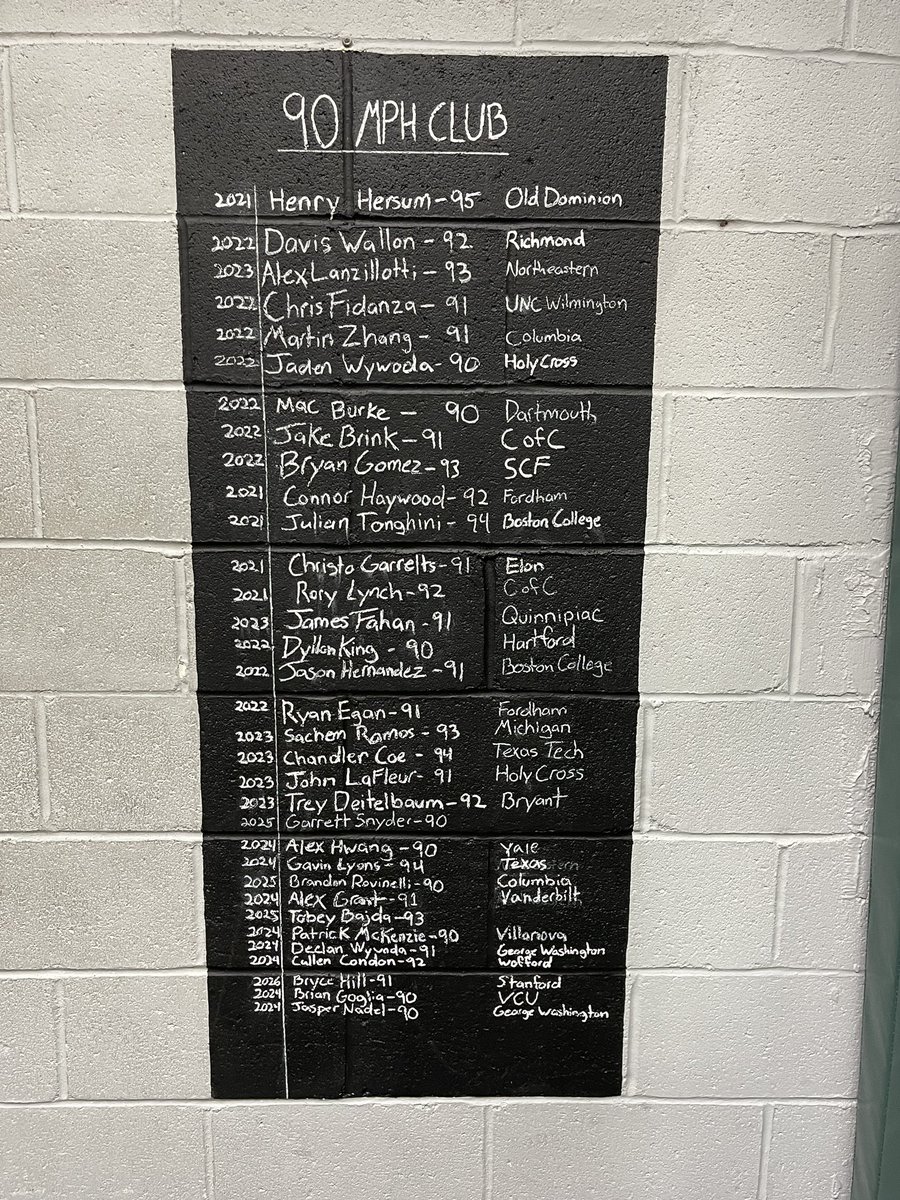 90 MPH CLUB
2021 Henry Hersum-95 Old Dominion
2022 Davis Wallon - 92 Richmond
2023 Alex Lanzillotti - 93 Northeastern
2022 Chris Fidanza - 91 UNC Wilmington
2022 Martin Zhang - 91 Columbia
2022 Jaden Wywoda- 90 Holy Cross
2022 Mac Burke - 90 Dartmouth
2022 Jake Brink - 91 CofC
2022 Bryan Gomez-93 SCF
2021 Connor Haywood- 92 Fordham
2021 Julian Tonghini - 94 Boston College
2021 Christo Garrelts-91 Elon
2021 Rory Lynch-92 CofC
2023 James Fahan - 91 Quinnipiac
2022 Dyllon King - 90 Hartford
2022 Jason Hernandez -91 Boston College
2022 Ryan Egan-91 Fordham
2023 Sachem Ramos - 93 Michigan
2023 Chandler Coe - 94 Texas Tech
2023 John LaFleur- 91 Holy Cross
2023 Trey Deitelbaum-92 Bryant
2025 Garrett Snyder-90
2024 Alex Hwang - 90 Yale
2024 Gavin Lyons - 94 Texas
2025 Brandon Rovinelli-90 Columbia
2024 Alex Grant-91 Vanderbilt
2025 Tobey Bajda-93
2024 Patrick McKenzie-90 Villanova
2024 Declan Wywoda-91 George Washington
2024 Cullen Condon-92 Wofford
2026 Bryce Hill-91 Stanford
2024 Brian Goglia-90 VCU
2024 Jasper Nadel-90 George Washington